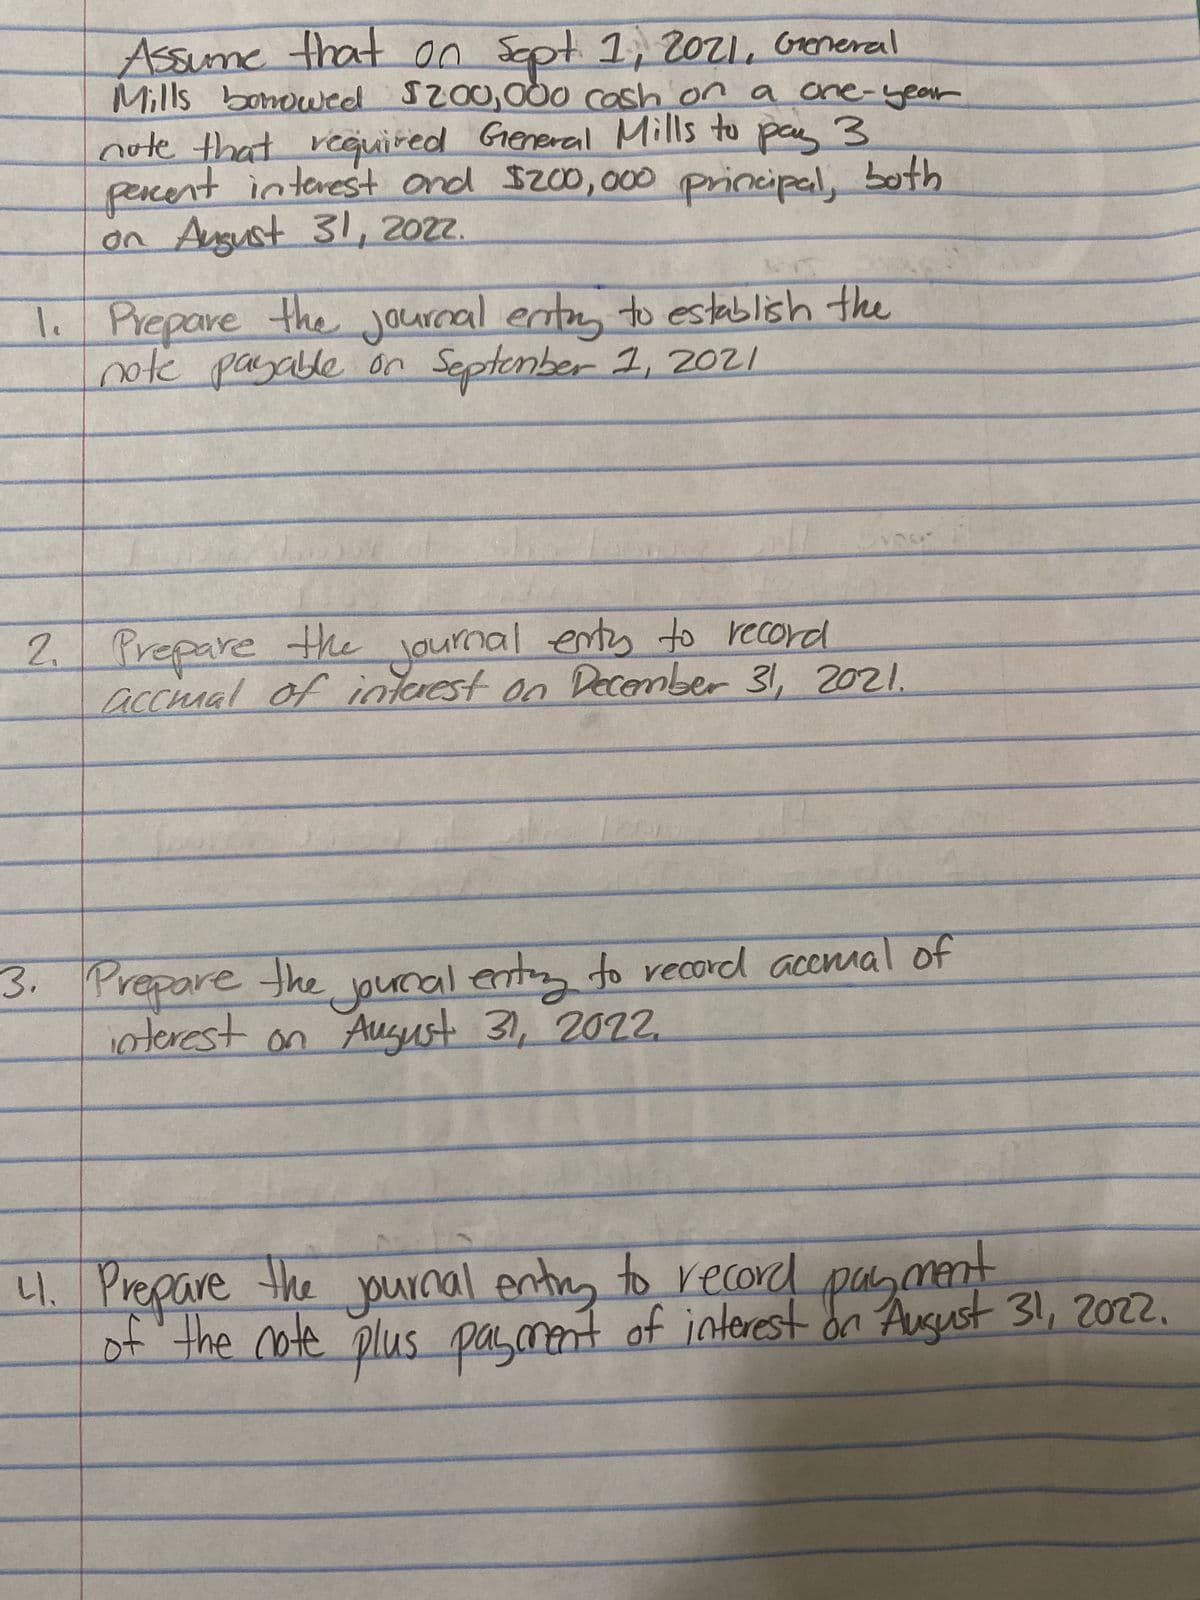 Assume that on Sept 1, 2021, General
Mills borrowed $200,000 cash on a one-year
note that required General Mills to pay 3
percent interest and $200,000 principal, both
on August 31, 2022.
1. Prepare the journal entry to establish the
note payable on September 1, 2021
2. Prepare the journal entry to record
accrual of interest on December 31, 2021.
3. Prepare the journal entry to record accrual of
interest on August 31, 2022.
4. Prepare the journal entry to record payment
of the note plus payment of interest on August 31, 2022.